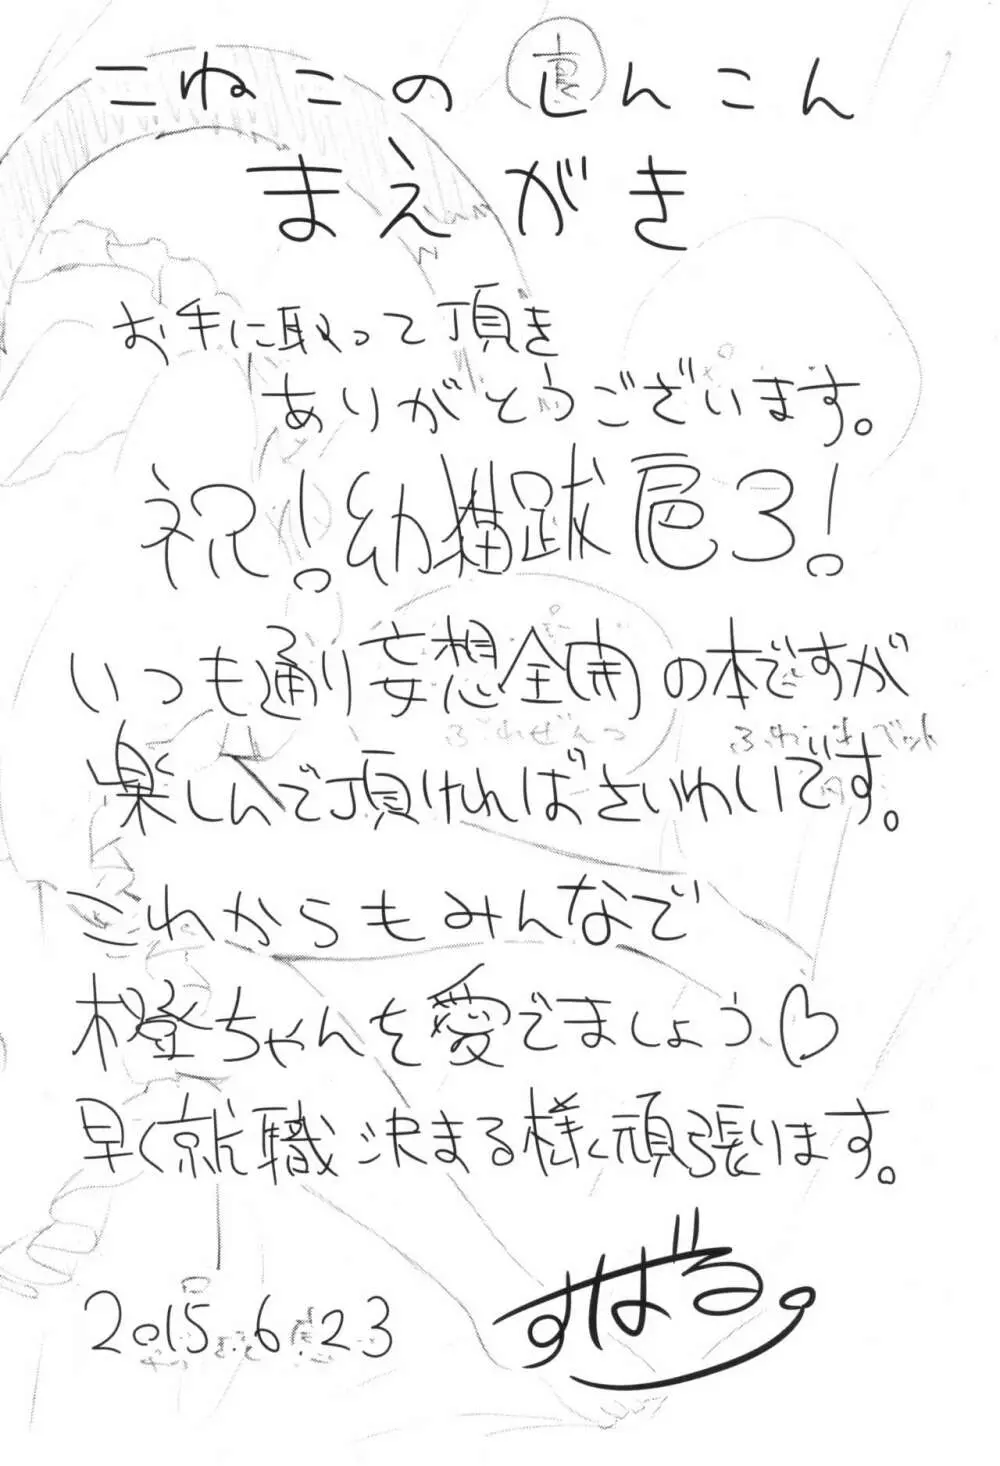 こねこの裏んこん
まえがき
お手に取って頂き
ありがとうございます。
祝！幼猫跋扈3！
いつも通り妄想全開の本ですが
楽しんで頂ければさいわいです。
これからもみんなで
橙ちゃんを愛でましょう♡
早く就職決まる様に頑張ります。
2015.6.23
すばる。